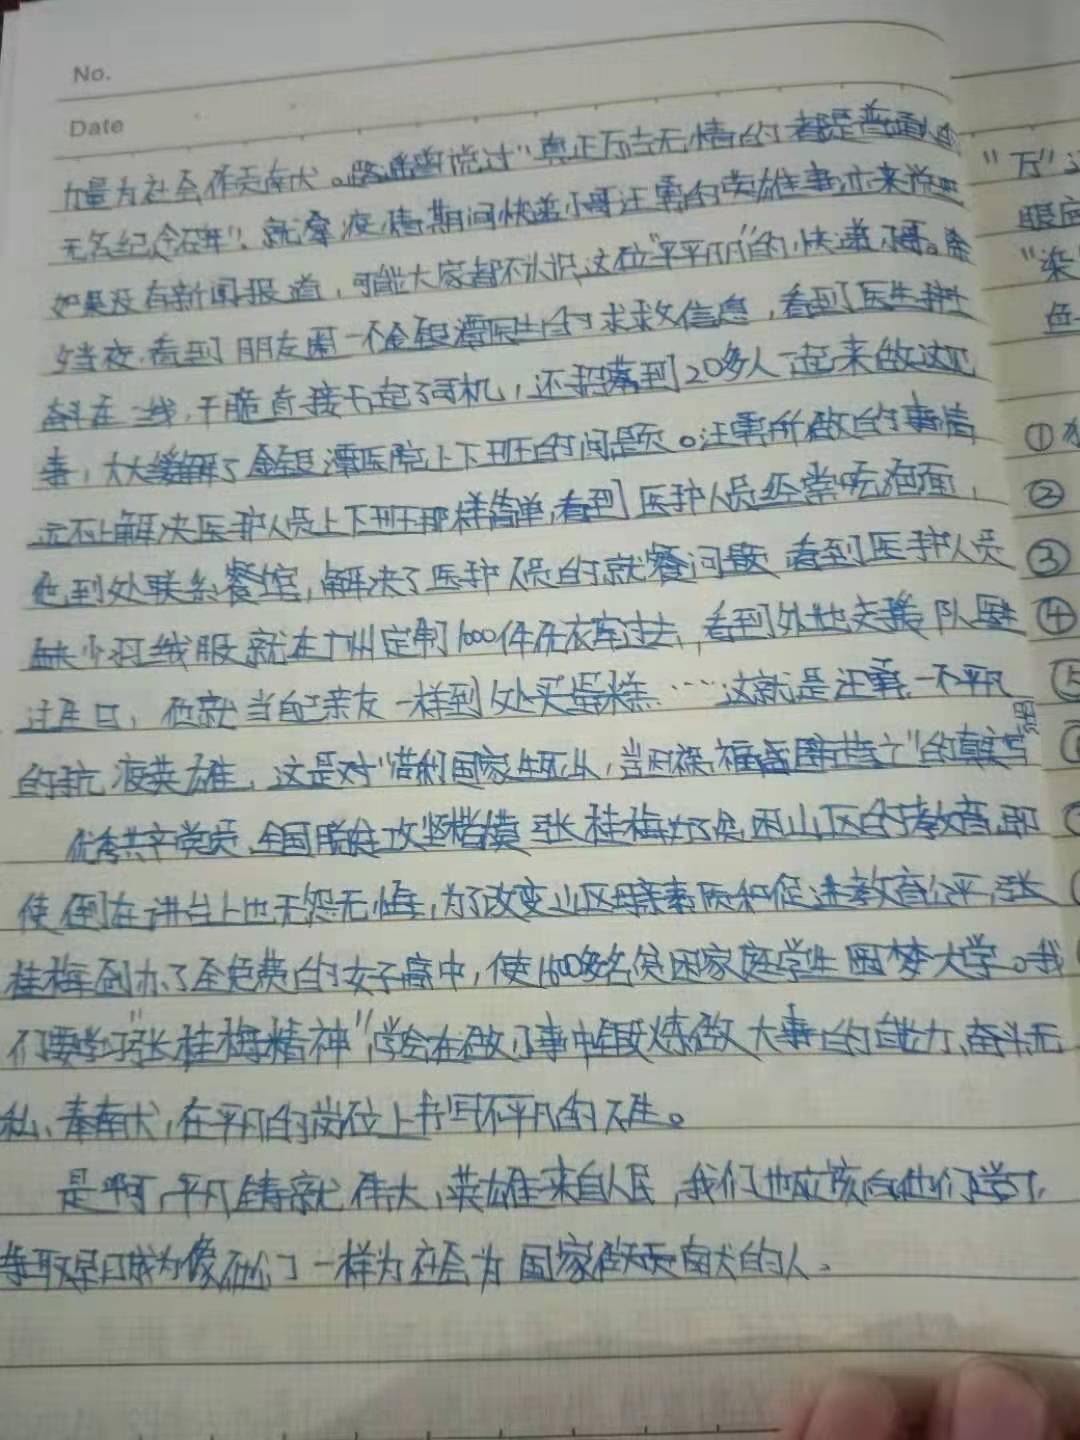 No.
Date
力量为社会作贡献。路遥曾说过"真正万古无情的都是普通人的
无名纪念碑"。就拿疫情期间快递小哥汪勇的英雄事迹来说吧
如果没有新闻报道,可能大家都不认识这位"平平凡凡"的快递小哥。除
夕当夜,看到朋友圈一个金银潭医生的求救信息,看到医生护士
奋斗在一线,干脆直接干起了司机,还招募到20多人一起来做这见
事,大大缓解了金银潭医院上下班的问题。汪勇所做的事情
远不止解决医护人员上下班那样简单,看到医护人员经常吃泡面,
他到处联系餐馆,解决了医护人员的就餐问题 看到医护人员
缺少羽绒服就在广州定制1600件洗衣库过去,看到外地支援队医生
过生日,他就当自己亲友一样到处买蛋糕……这就是汪勇,一个平凡
的抗疫英雄,这是对"苟利国家生死以,岂因祸福避趋之"的真实写照
优秀共产党员、全国脱贫攻坚楷模张桂梅为了贫困山区的教育,即
使倒在讲台上也无怨无悔,为了改变山区母亲素质和促进教育公平,张
桂梅创办了全免费的女子高中,使1600多名贫困家庭学生圆梦大学。我
们要学习"张桂梅精神",学会在做小事中锻炼做大事的能力、奋斗无
私、奉献,在平凡的岗位上书写不平凡的人生。
是啊,平凡铸就伟大,英雄来自人民,我们也应该向他们学习,
争取早日成为像他们一样为社会为国家做贡献的人。
"万"
眼应
"染"
色
①
②
③
④
⑤